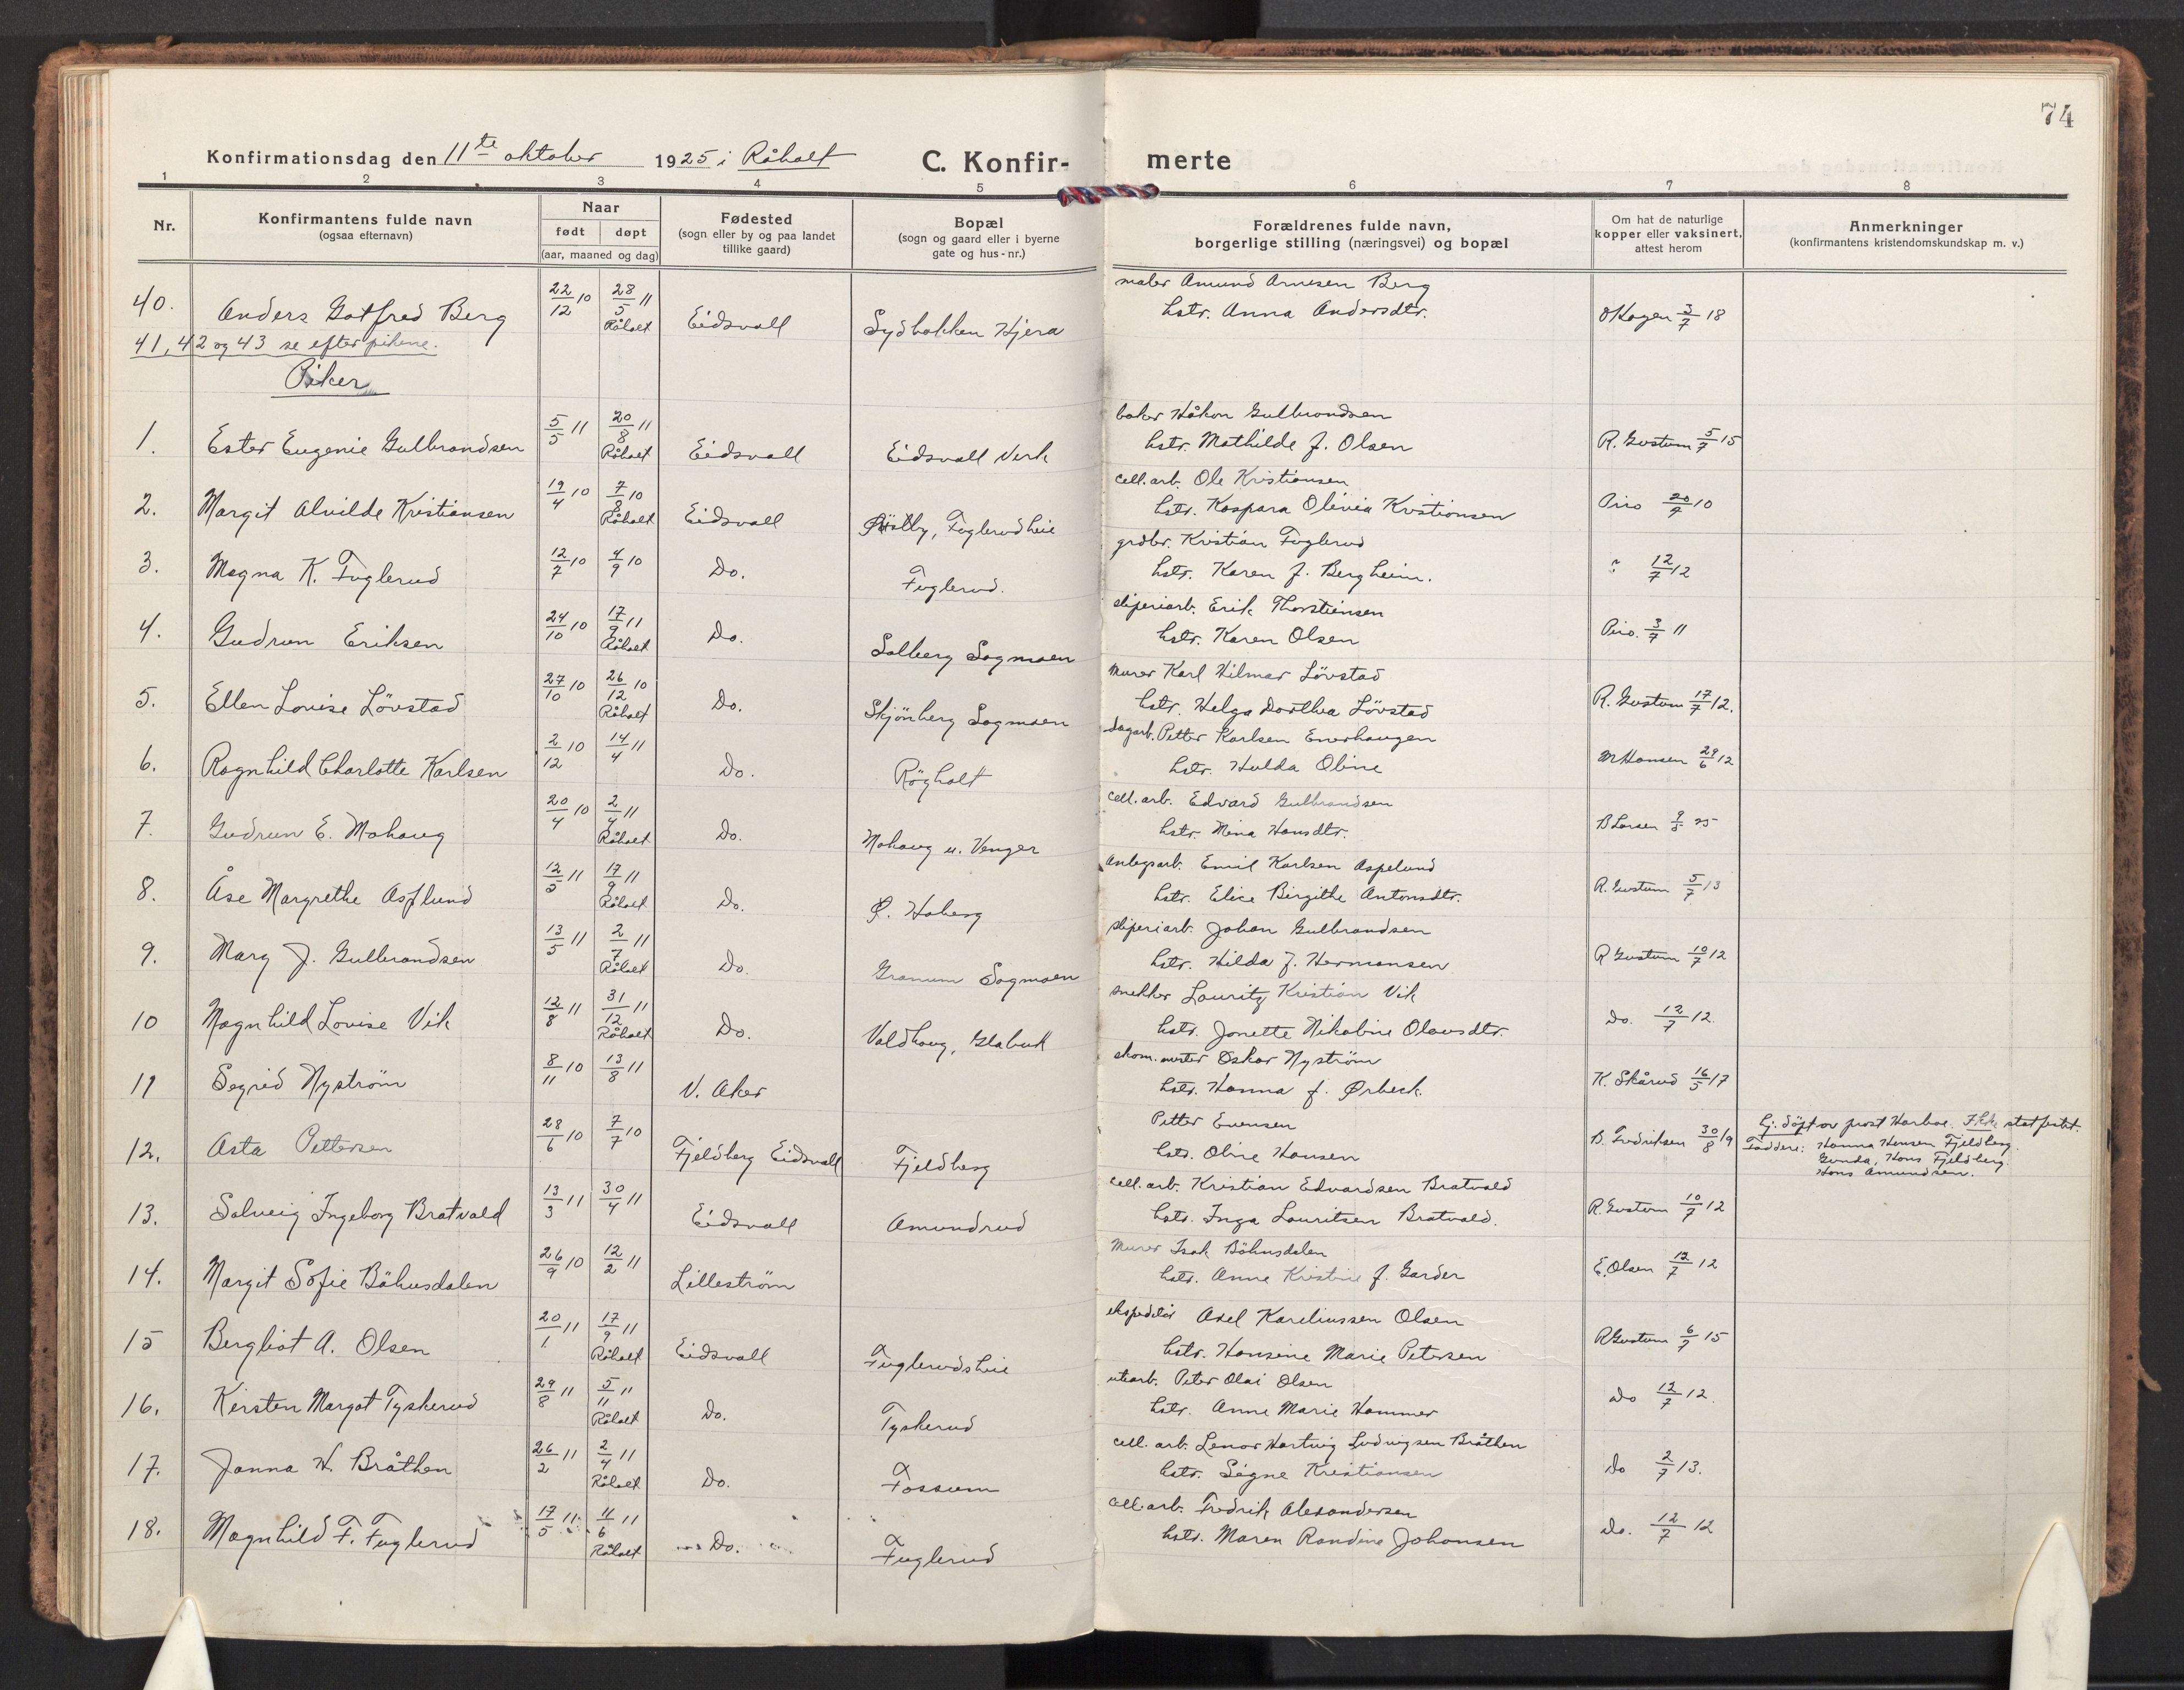 74
Konfirmationsdag den 11te oktober 1925 i Råholt C. Konfir- merte
1 2 3 4 5 6 7 8
Nr. Konfirmantens fulde navn (ogsaa efternavn) Naar født døpt (aar, maaned og dag) Fødested (sogn eller by og paa landet tillike gaard) Bopæl (sogn og gaard eller i byerne gate og hus-nr.) Forældrenes fulde navn, borgerlige stilling (næringsvei) og bopæl Om hat de naturlige kopper eller vaksinert, attest herom Anmerkninger (konfirmantens kristendomskundskap m. v.)
maler Amund Arnesen Berg
40. Anders Gotfred Berg 22/12 10 28/5 11 Råholt Eidsvoll Sydbakken Hjera hstr. Anna Andersdtr. OHagen 3/7 18
41, 42 og 43 se efter pikene.
Piker
baker Håkon Gulbrandsen
1. Ester Eugenie Gulbrandsen 5/5 11 20/8 11 Råholt Eidsvoll Eidsvoll Verk hstr. Mathilde f. Olsen R. Gustum 5/7 15
cell.arb. Ole Kristiansen
2. Margit Alvilde Kristiansen 19/4 10 7/8 10 Råholt Eidsvoll Østby, Fuglerudheie hstr. Kaspara Olivia Kristiansen Piro 20/7 10
grdbr. Kristian Fuglerud
3. Magna K. Fuglerud 12/7 10 4/9 10 Do. Fuglerud. hstr. Karen f. Bergheim. " 12/7 12
sliperiarb. Erik Thorstensen
4. Gudrun Eriksen 24/10 10 17/9 11 Råholt Do. Solberg Sagmoen hstr. Karen Olsen Piro. 3/7 11
Murer Karl Hilmar Lövstad
5. Ellen Lovise Lövstad 27/10 10 26/12 10 Råholt Do. Skjönberg Sagmoen hstr. Helga Dorthea Lövstad R. Gustum 17/7 12.
dagarb. Petter Karlsen Enerhaugen
6. Ragnhild Charlotte Karlsen 2/12 10 14/4 11 Do. Rögholt hstr. Hulda Oline M Hansen 29/6 12
cell.arb. Edvard Gulbrandsen
7. Gudrun E. Mohaug 20/4 10 2/4 11 Råholt Do. Mohaug u. Venger hstr. Mina Hansdtr. B Larsen 9/5 25
Anlegsarb. Emil Karlsen Aspelund
8. Åse Margrethe Asplund 12/5 11 17/9 11 Råholt Do. Ø. Haberg hstr. Elice Birgithe Antonsdtr. R. Gustum 5/7 13
sliperiarb. Johan Gulbrandsen
9. Mary J. Gulbrandsen 13/5 11 2/7 11 Råholt Do. Granum Sagmoen hstr. Hilda f. Hermansen R Gustum 10/7 12
snekker Lauritz Kristian Vik
10 Magnhild Lovise Vik 12/8 11 31/12 11 Råholt Do. Valdhaug, hstr. Jonette Nikoline Olausdtr. Do. 12/7 12.
skom. mester Oskar Nyström
11 Segrid Nyström 8/11 10 13/8 11 V. Aker hstr. Hanna f. Ørbeck. K. Skårud 16/5 17
12. Asta Pettersen 28/6 10 7/7 10 Fjeldberg Eidsvoll Fjeldberg Petter Evensen hstr. Oline Hansen B. Fredriksen 30/8 19 hj. döpt av prost Harboe. Ikke statfestet.
Faddere: Hanna Hansen Fjeldberg.
Gunda, Hans Fjeldberg.
Hans Amundsen.
cell.arb. Kristian Edvardsen Bratvold
13. Solveig Ingeborg Bratvold 13/3 11 30/4 11 Eidsvoll Amundrud hstr. Inga Lauritsen Bratvold. R. Gustum 10/7 12
Murer Isak Böhnsdalen
14. Margit Sofie Böhnsdalen 26/9 10 12/2 11 Lilleström hstr. Anne Kristine f. Garder E. Olsen 12/7 12
ekspeditör Axel Kareliussen Olsen
15 Bergliot A. Olsen 20/1 11 17/9 11 Råholt Eidsvoll Fuglerudsheie hstr. Hansine Marie Petersen R Gustum 6/7 15
utearb. Peter Olai Olsen
16. Kirsten Margot Tyskerud 29/8 11 5/11 11 Råholt Do. Tyskerud hstr. Anne Marie Hammer Do 12/7 12.
cell. arb. Lenor Hartvig Ludvigsen Bråthen
17. Janna H. Bråthen 26/2 11 2/4 11 Råholt Do. Fossum hstr. Signe Kristiansen Do 2/7 13.
cell.arb. Fredrik Alexandersen
18. Magnhild F. Fuglerud 17/5 11 11/6 11 Råholt Do. Fuglerud hstr. Maren Randine Johansen Do. 12/7 12